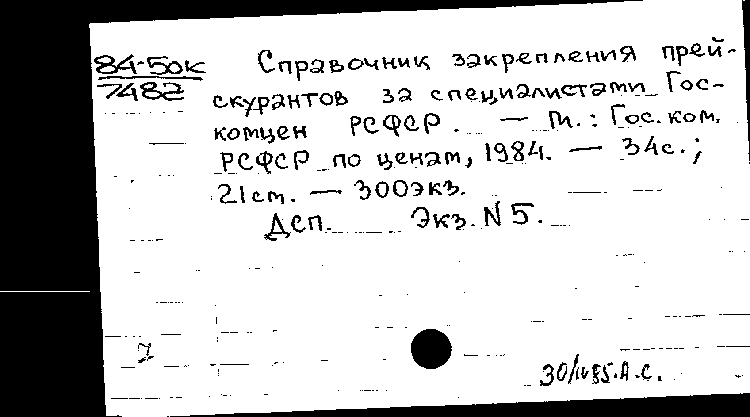 84-50к
7482
Справочник закрепления прей-
скурантов за специалистами Гос-
комцен РСФСР. — М.: Гос. ком.
РСФСР по ценам, 1984. — 34с.;
21см. — 300экз.
ДСП. Экз. N 5.